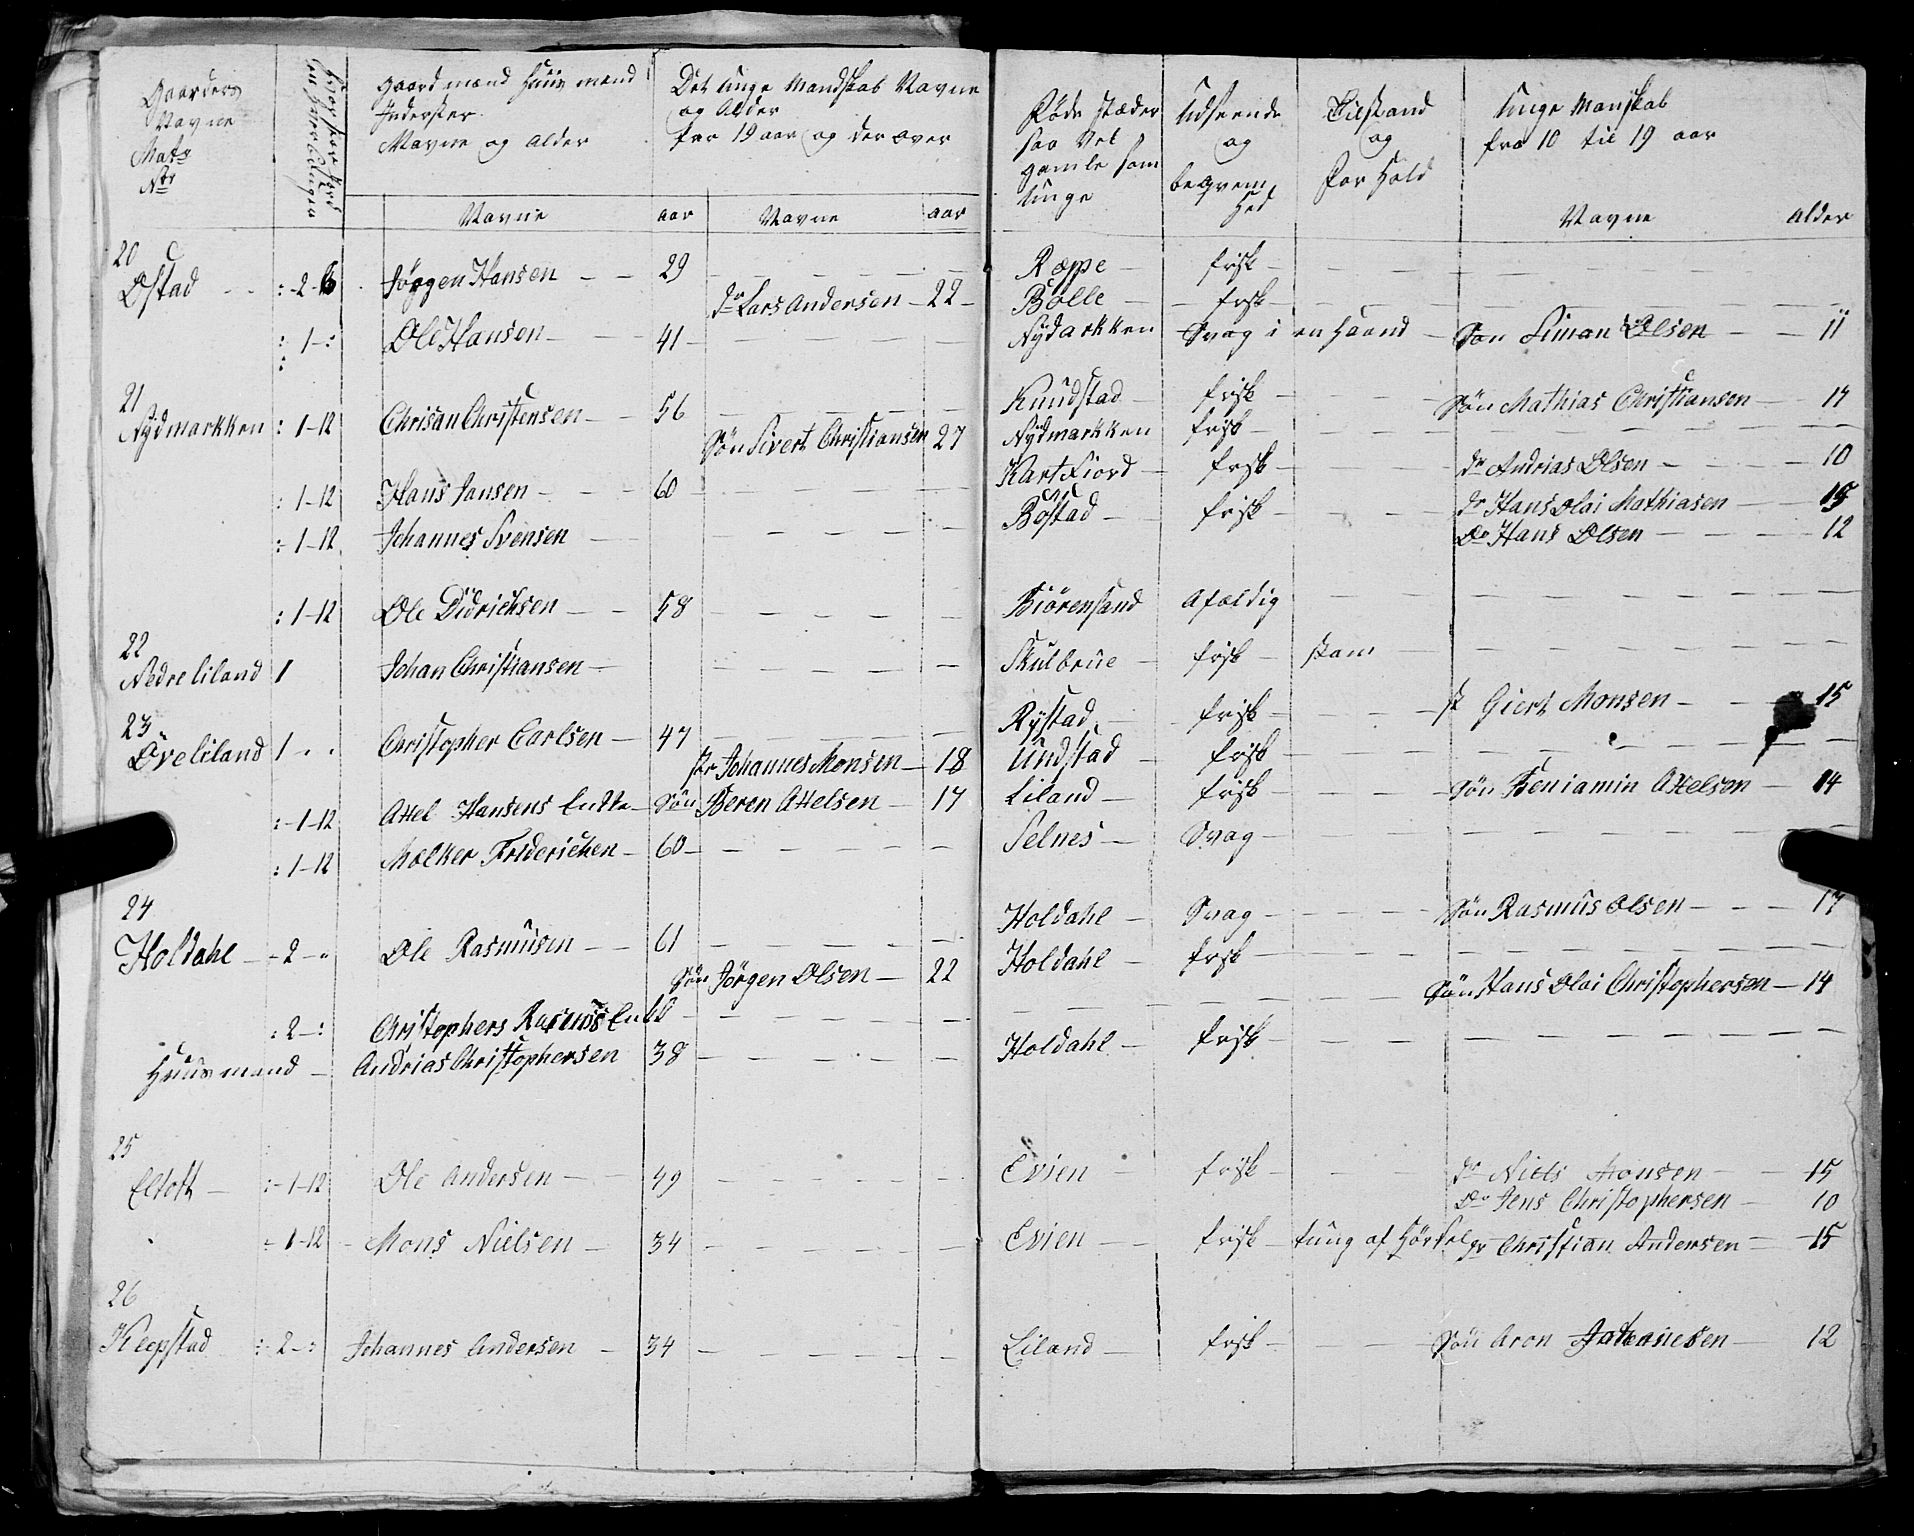 Gaardens Navne Matr Nr
Hvor stor Jord en hver bruger
Gaardmænd Huusmænd Inderster Navne og Alder
Det unge Mandskab Navne og Alder fra 19 aar og der over
Føde Stæder saa Vel gamle som unge
Udseende og beqvem hed
Tilstand og For Hold
Unge Manskab fra 10 til 19 aar
Navne aar Navne aar Navne Alder
20
Ostad :-2-6 Jørgen Hansen 29 Ræppe frisk
dr Lars Andersen 22 Bolle frisk
: 1-: Ole Hansen 41 Nydarkken Svag i en Haand Søn Siman Olsen 11
21
Nydmarkken : 1-12 Chrisan Christensen 56 Knudstad frisk Søn Mathias Christiansen 17
Søn Sivert Christiansen 27 Nydmarkken frisk
: 1-12 Hans Jansen 60 Kartfiord frisk dr Andrias Olsen 10
: 1-12 Johannes Svensen Bøstad frisk dr Hans Olai Mathiasen 15
Do Hans Olsen 12
: 1-12 Ole Didrichsen 58 Biørensand Afældig
22
Nedre Liland 1 Johan Christiansen Skulbrue frisk
23
Øvre Liland 1 Christopher Carlsen 47 Rystad frisk Giert Monsen 15
Johannes Monsen 18 Undstad frisk
: 1-12 Axel Hansens Enke Søn Beren Axelsen 17 Liland frisk Søn Beniamin Axelsen 14
: 1-12 Mælker Friderichen 60 Selnes Svag
24
Holdahl 2 Ole Rasmusen 61 Holdahl Svag Søn Rasmus Olsen 17
Søn Jørgen Olsen 22 Holdahl frisk
: 2-: Christophers Rasmus Søn Hans Olai Christophersen 14
Huusmand Andrias Christophersen 38 Holdahl frisk
25
Eltoft :-1-12 Ole Andersen 49 Evien frisk dr Niels Monsen 15
Do Jens Christophersen 10
: 1-12 Mons Nielsen 34 Evien frisk tung af Hørsel dr Christian Andersen 15
26
Klepstad :-2-: Johannes Andersen 34 Liland frisk Søn Aron Johannesen 12